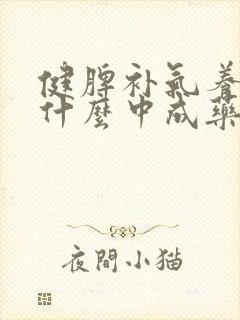 健脾补氣养
什麼中成藥
夜間小猫